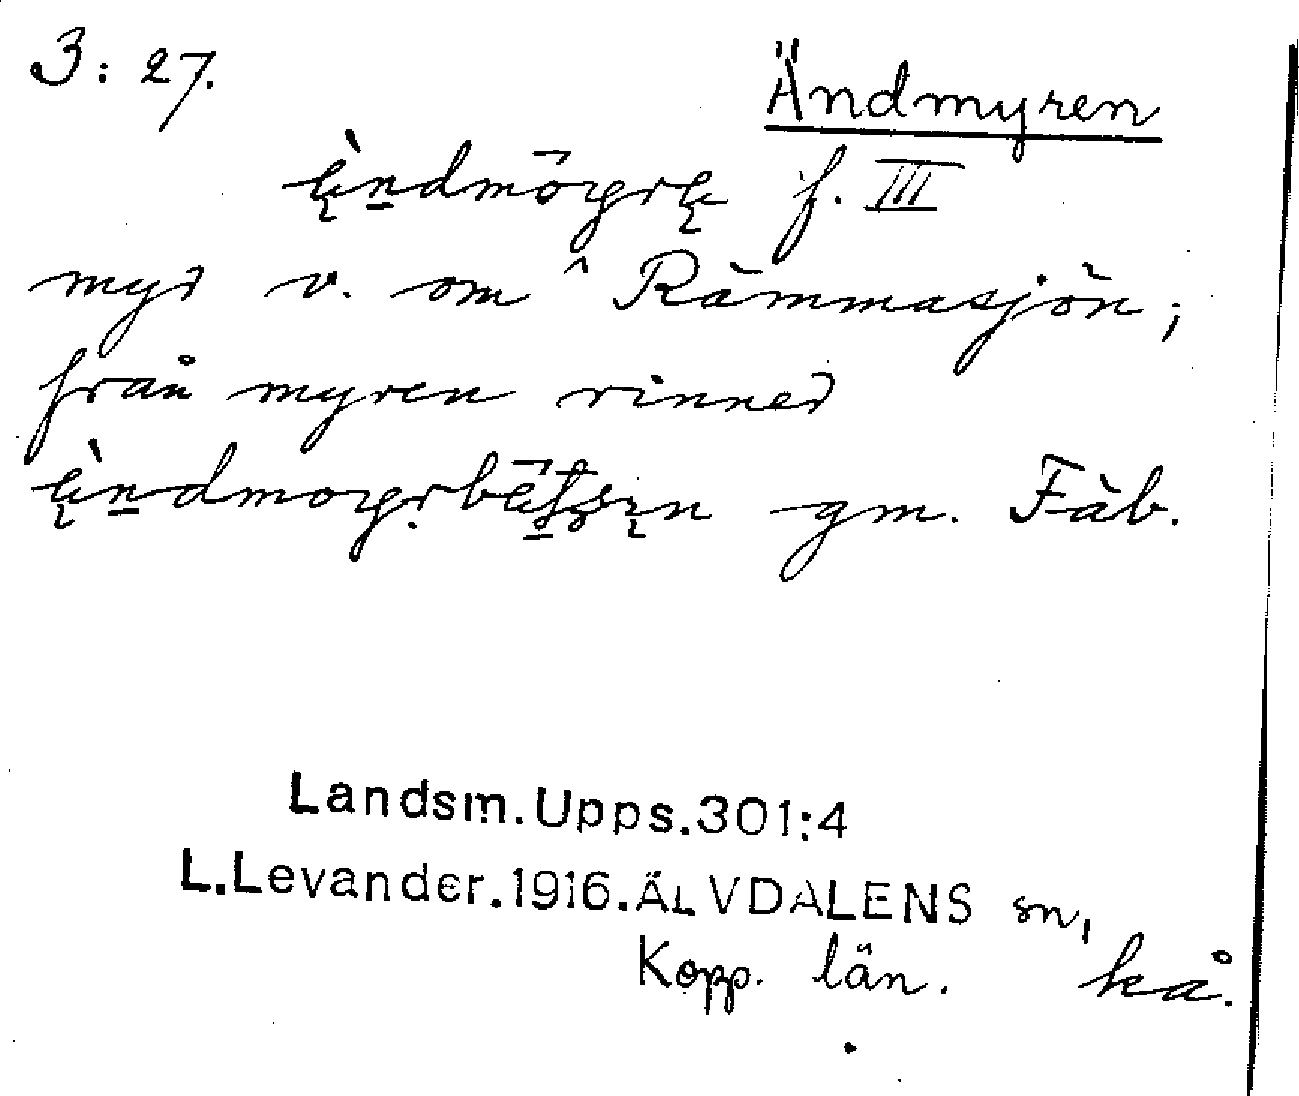 3: 27.
Ändmyren
f. III
myr v. om ^ Rämmasjön;
från myren rinner
gm. Fäb.
Landsm. Upps. 301:4
L. Levander. 1916. ÄLVDALENS sn,
Kopp. län. kå.